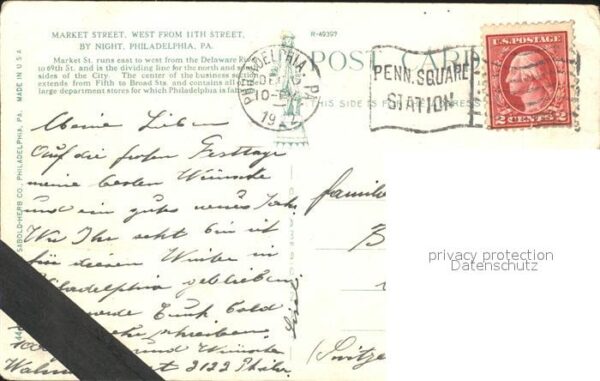 MARKET STREET, WEST FROM 11TH STREET,
BY NIGHT, PHILADELPHIA, PA.
Market St. runs east to west from the Delaware River
to 69th St. and is the dividing line for the north and south
sides of the City. The center of the business section
extends from Fifth to Broad Sts. and contains all
large department stores for which Philadelphia is
R-49397
POST CARD
THIS SIDE IS FOR THE ADDRESS
PHILADELPHIA PA.
10-
19
PENN. SQUARE
STATION
U.S. POSTAGE
2 CENTS 2
MADE IN U.S.A.
SABOLD-HERB CO., PHILADELPHIA, PA.
Meine Lieben
Auf die frohen Festtage
meine besten Wünsche
und ein gutes neues Jahr
Wie Ihr seht bin ich
für diesen Winter in
Philadelphia geblieben
werde Euch bald
schreiben
und Wünsche
Waln 2122 Phila.
Familie
B
(Switze
privacy protection
Datenschutz